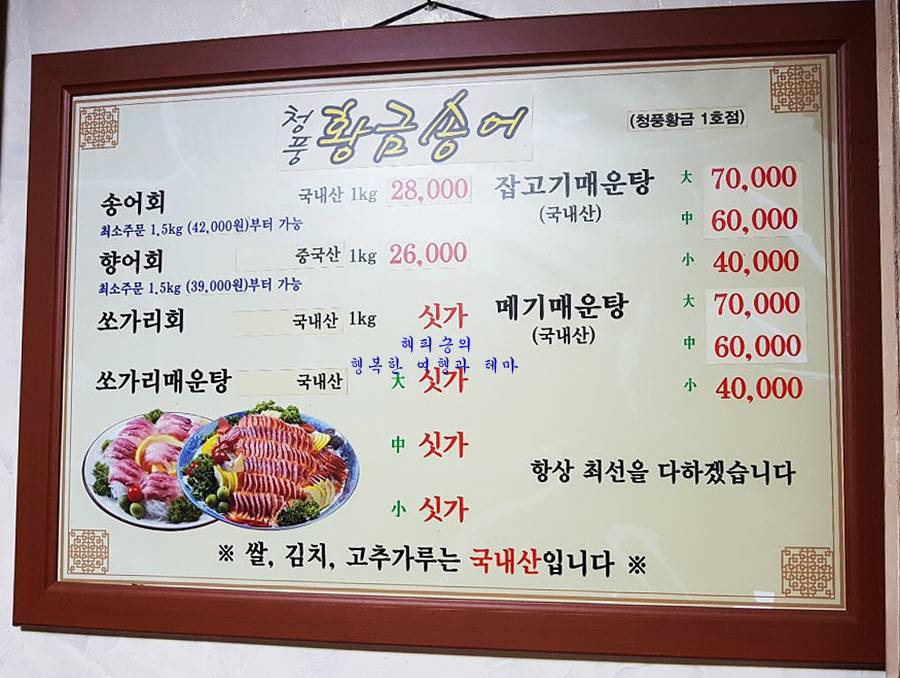 청풍 황금송어
(청풍황금 1호점)
송어회 국내산 1kg 28,000
최소주문 1.5kg (42,000원)부터 가능
향어회 중국산 1kg 26,000
최소주문 1.5kg (39,000원)부터 가능
쏘가리회 국내산 1kg 싯가
쏘가리매운탕 국내산 大 싯가
中 싯가
小 싯가
잡고기매운탕 大 70,000
(국내산) 中 60,000
小 40,000
메기매운탕 大 70,000
(국내산) 中 60,000
小 40,000
혜픠승의
행복한 여행과 테마
항상 최선을 다하겠습니다
※ 쌀, 김치, 고추가루는 국내산입니다 ※